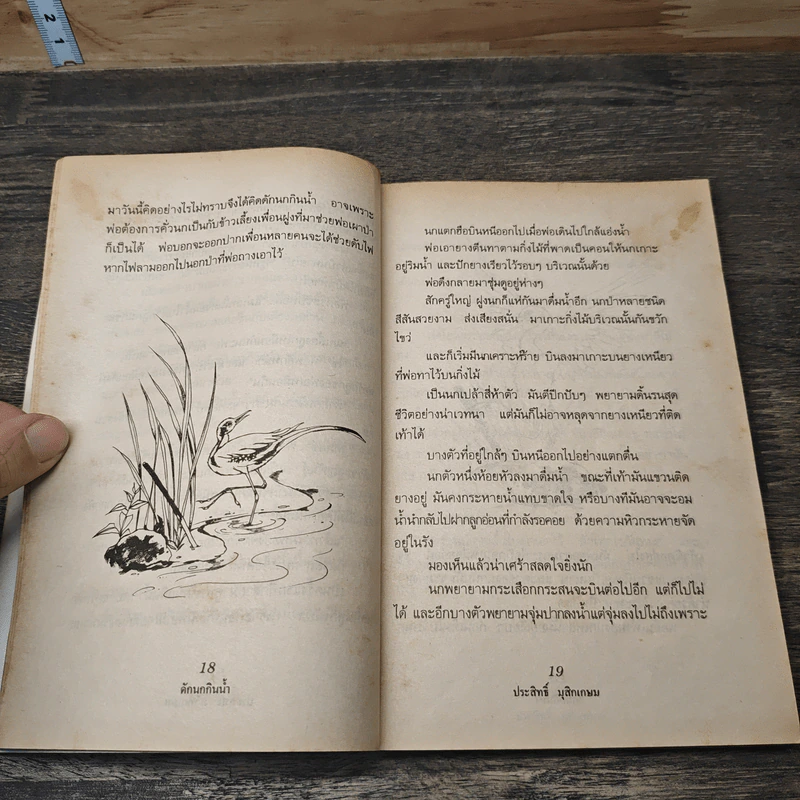 2
1
มาวันนี้คิดอย่างไรไม่ทราบจึงได้คิดดักนกกินน้ำ อาจเพราะ
พ่อต้องการคั่วนกเป็นกับข้าวเลี้ยงเพื่อนฝูงที่มาช่วยพ่อเผาป่า
ก็เป็นได้ พ่อบอกจะออกปากเพื่อนหลายคนจะได้ช่วยดับไฟ
หากไฟลามออกไปนอกป่าที่พ่อถางเอาไว้
18
ดักนกกินน้ำ
นกแตกฮือบินหนีออกไปเมื่อพ่อเดินไปใกล้แอ่งน้ำ
พ่อเอายางตีนทาตามกิ่งไม้ที่พาดเป็นคอนให้นกเกาะ
อยู่ริมน้ำ และปักยางเรียวไว้รอบๆ บริเวณนั้นด้วย
พ่อดึงกลายมาซุ่มดูอยู่ห่างๆ
สักครู่ใหญ่ ฝูงนกก็แห่กันมาดื่มน้ำอีก นกป่าหลายชนิด
สีสันสวยงาม ส่งเสียงสนั่น มาเกาะกิ่งไม้บริเวณนั้นกันขวัก
ไขว่
และก็เริ่มมีนกเคราะห์ร้าย บินลงมาเกาะบนยางเหนียว
ที่พ่อทาไว้บนกิ่งไม้
เป็นนกเปล้าสี่ห้าตัว มันตีปีกปับๆ พยายามดิ้นรนสุด
ชีวิตอย่างน่าเวทนา แต่มันก็ไม่อาจหลุดจากยางเหนียวที่ติด
เท้าได้
บางตัวที่อยู่ใกล้ๆ บินหนีออกไปอย่างแตกตื่น
นกตัวหนึ่งห้อยหัวลงมาดื่มน้ำ ขณะที่เท้ามันแขวนติด
ยางอยู่ มันคงกระหายน้ำแทบขาดใจ หรือบางทีมันอาจจะอม
น้ำนำกลับไปฝากลูกอ่อนที่กำลังรอคอย ด้วยความหิวกระหายจัด
อยู่ในรัง
มองเห็นแล้วน่าเศร้าสลดใจยิ่งนัก
นกพยายามกระเสือกกระสนจะบินต่อไปอีก แต่ก็ไปไม่
ได้ และอีกบางตัวพยายามจุ่มปากลงน้ำแต่จุ่มลงไปไม่ถึงเพราะ
19
ประสิทธิ์ มุสิกเกษม